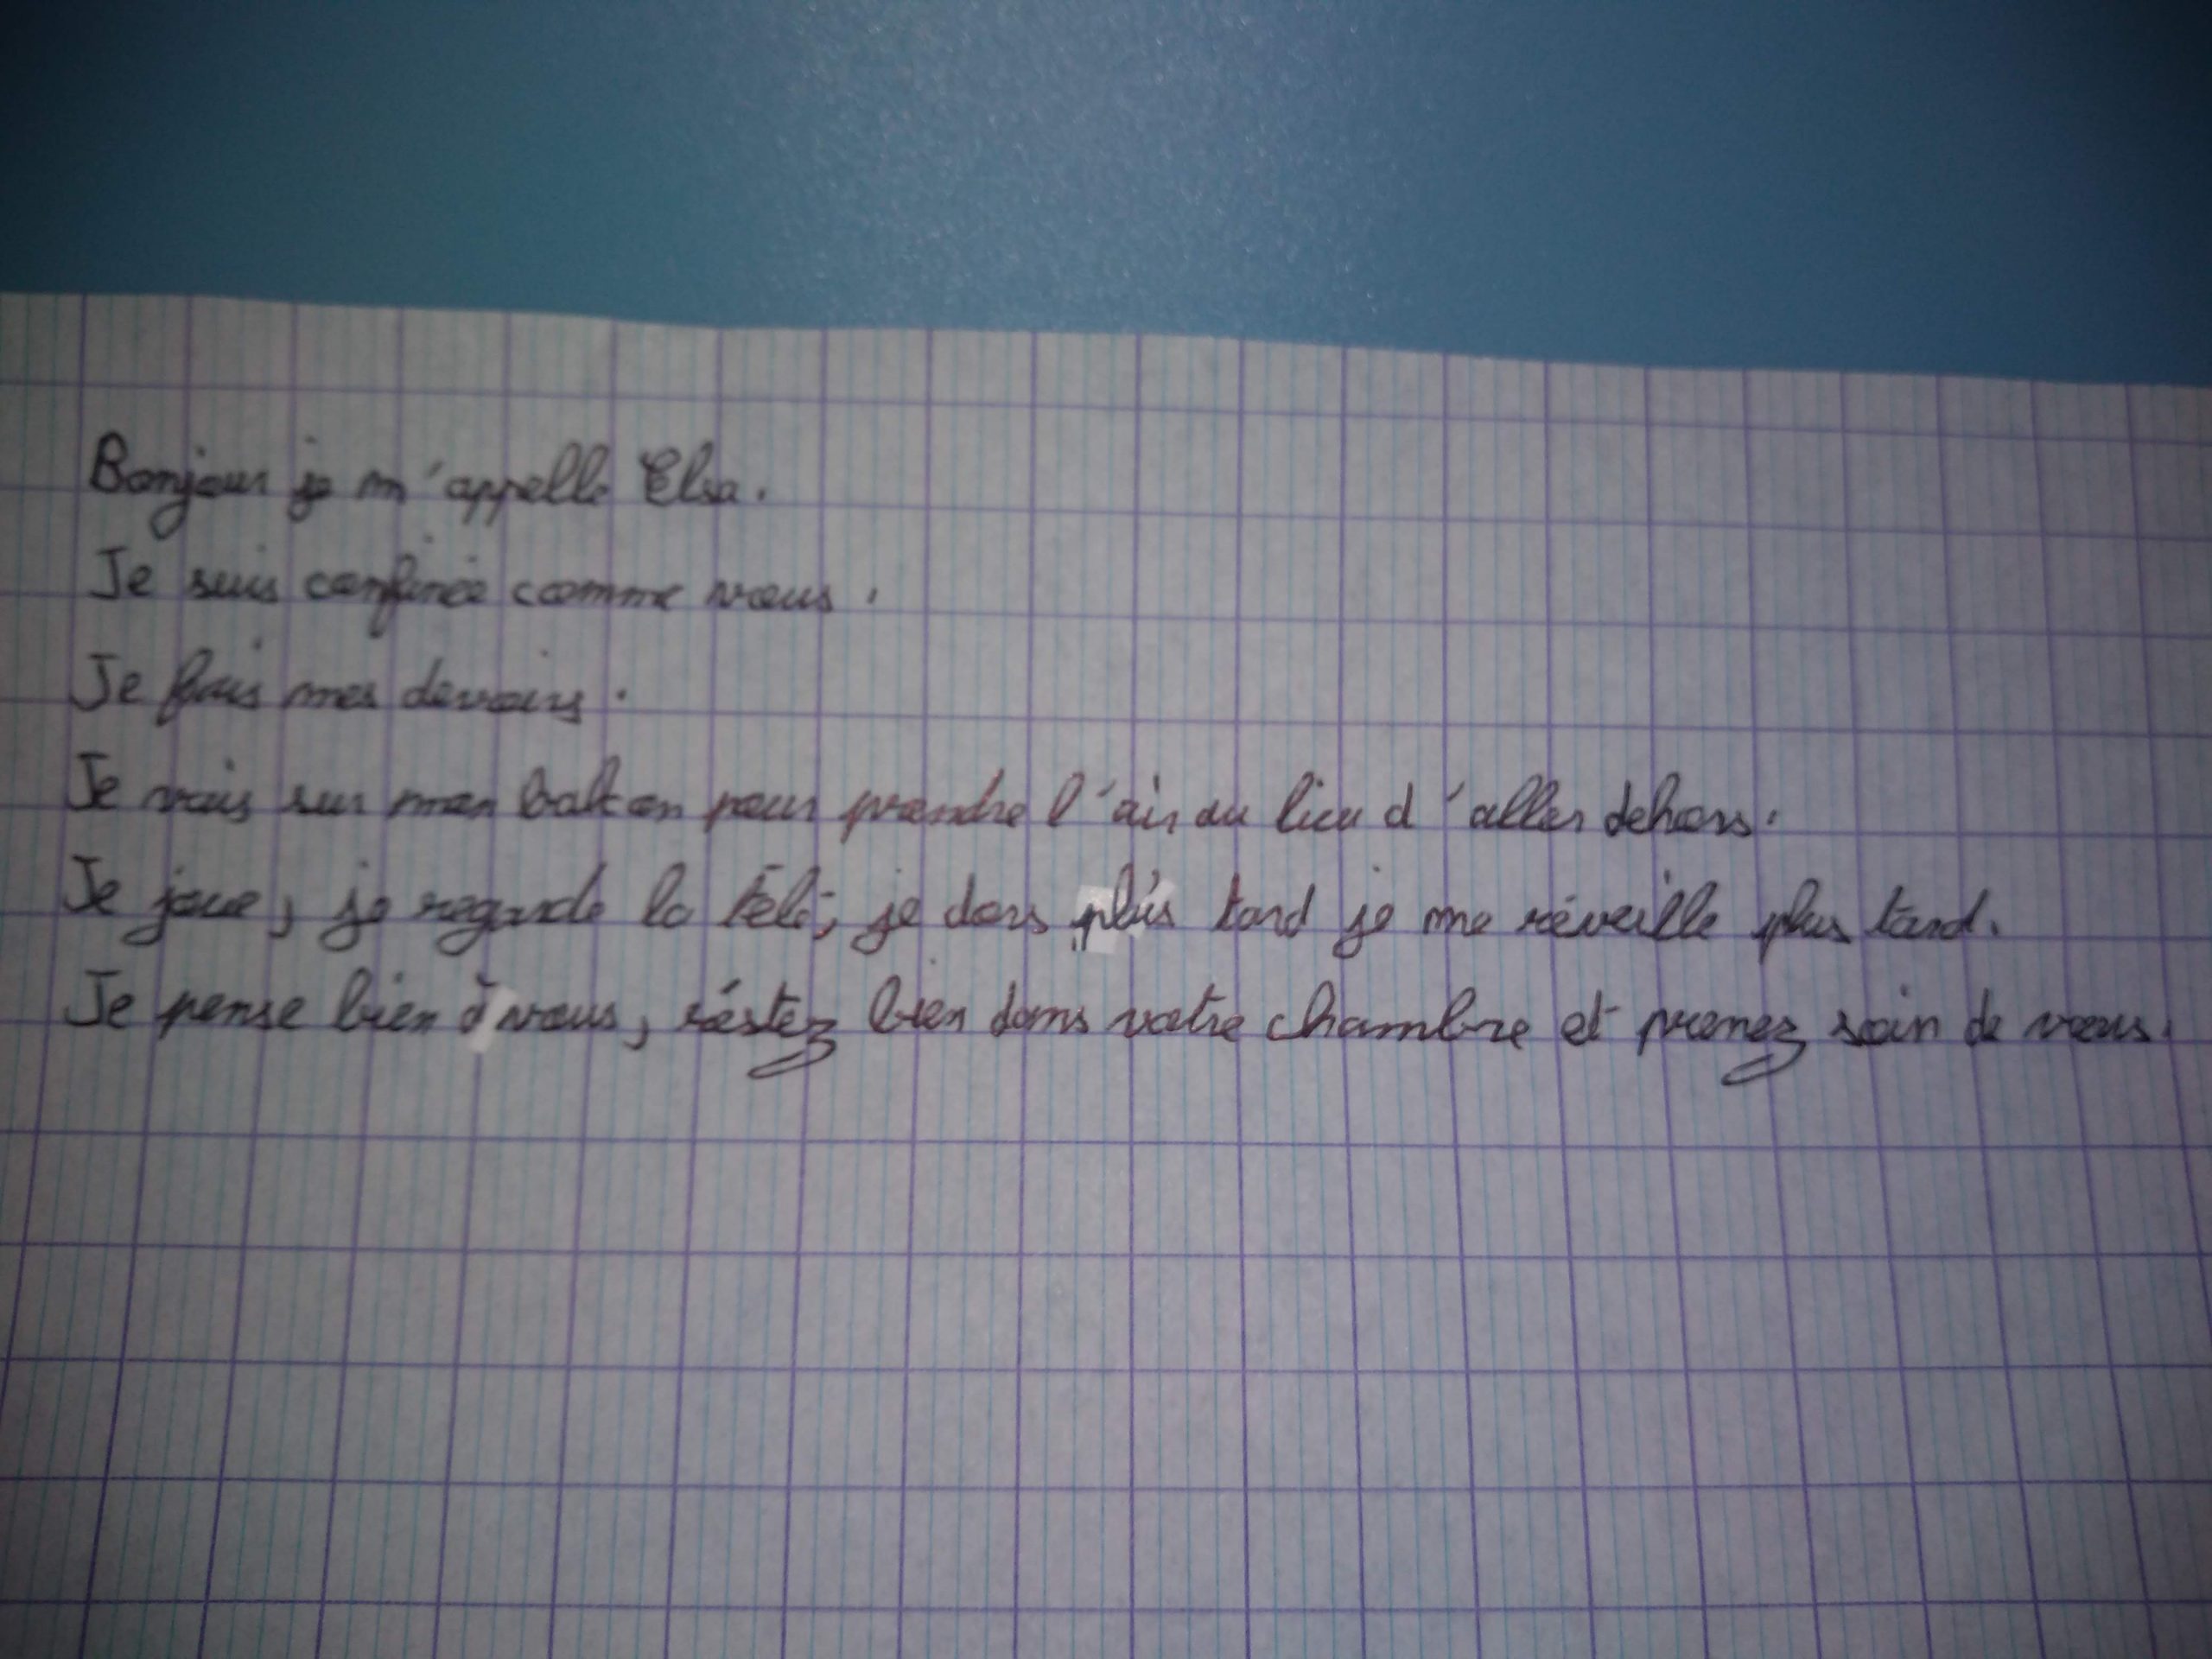 Bonjour je m'appelle Elsa.
Je suis confinée comme vous.
Je fais mes devoirs.
Je vais sur mon balcon pour prendre l'air au lieu d'aller dehors.
Je joue, je regarde la télé, je dors plus tard je me réveille plus tard.
Je pense bien à vous, réstez bien dans votre chambre et prenez soin de vous.